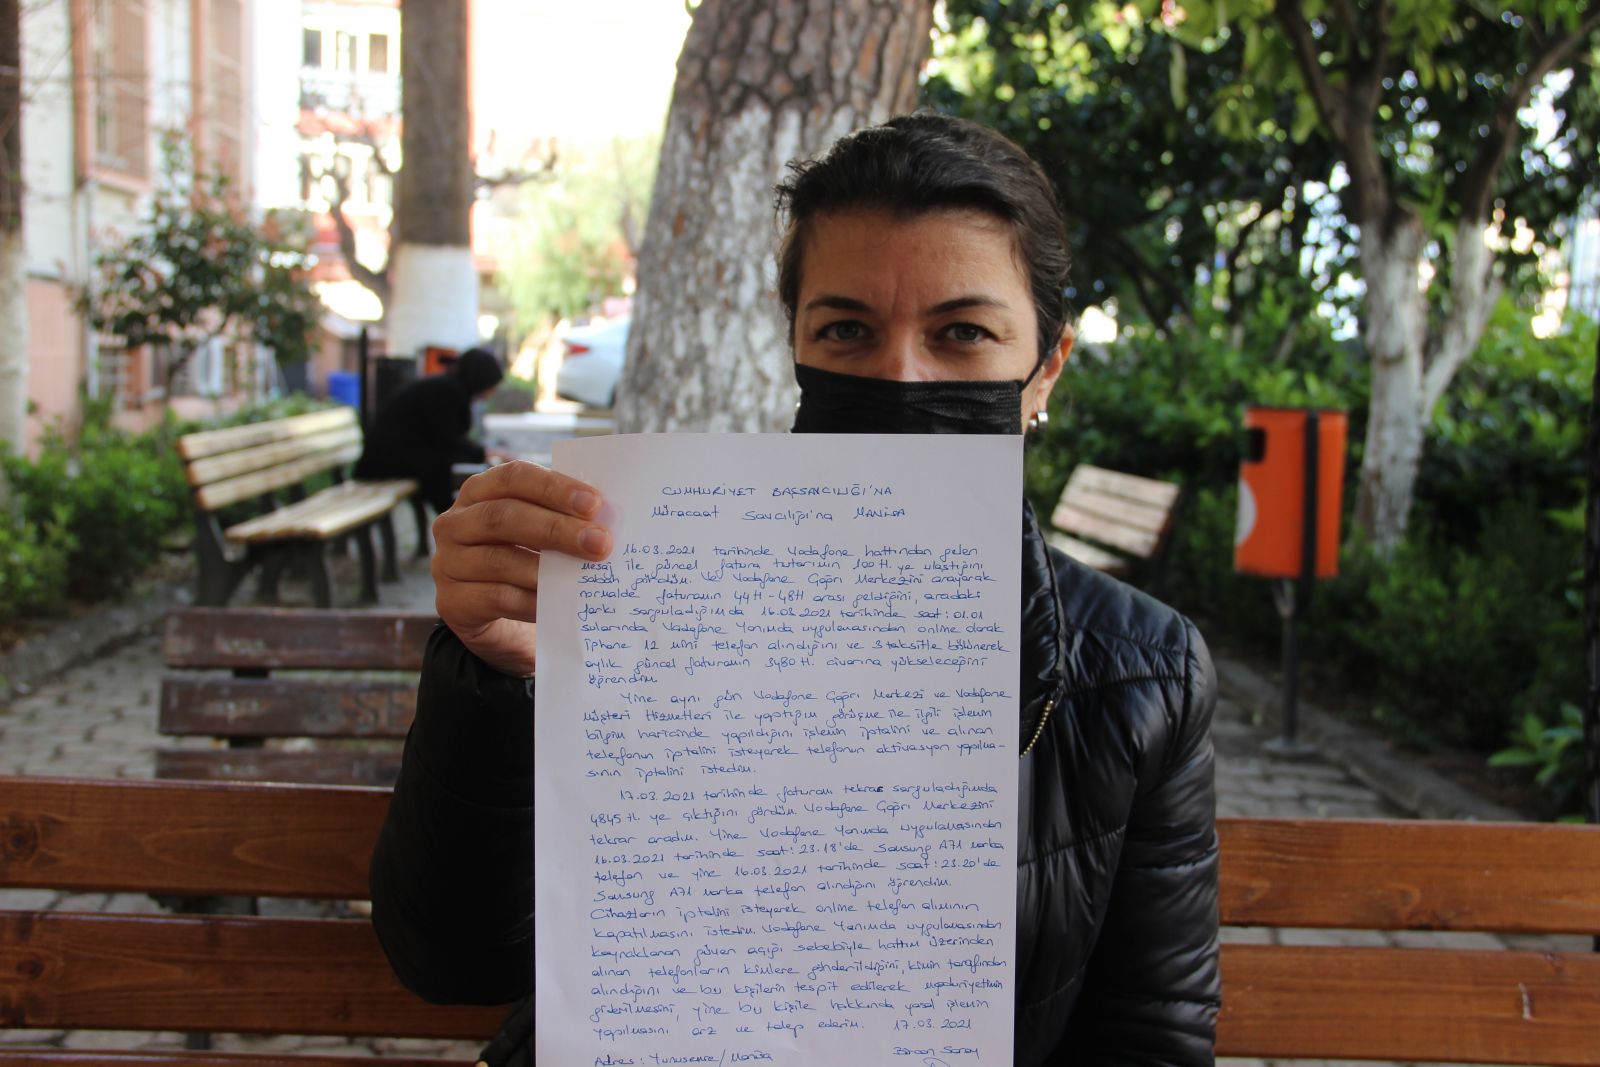 CUMHURİYET BAŞSAVCILIĞI'NA
Müracaat Savcılığı'na MANİSA
16.03.2021 tarihinde Vodafone hattından gelen
mesaj ile güncel fatura tutarımın 100 tl. ye ulaştığını
sabah gördüm. Ve Vodafone Çağrı Merkezini arayarak
normalde faturamın 44 tl - 48 tl arası geldiğini, aradaki
farkı sorguladığımda 16.03.2021 tarihinde saat: 01.01
sularında Vodafone Yanımda uygulamasından online olarak
iphone 12 mini telefon alındığını ve 3 taksitle bölünerek
aylık güncel faturamın 3480 tl. civarına yükseleceğini
öğrendim.
Yine aynı gün Vodafone Çağrı Merkezi ve Vodafone
Müşteri Hizmetleri ile yaptığım görüşme ile ilgili işlemin
bilgim haricinde yapıldığını işlemin iptalini ve alınan
telefonun iptalini isteyerek telefonun aktivasyon yapılma-
sının iptalini istedim.
17.03.2021 tarihinde faturam tekrar sorguladığımda
4845 tl. ye çıktığını gördüm Vodafone Çağrı Merkezini
tekrar aradım. Yine Vodafone Yanımda uygulamasından
16.03.2021 tarihinde saat: 23.18'de Samsung A71 marka
telefon ve yine 16.03.2021 tarihinde saat: 23.20'de
Samsung A71 marka telefon alındığını öğrendim.
Cihazların iptalini isteyerek online telefon alımının
kapatılmasını istedim. Vodafone Yanımda uygulamasından
kaynaklanan güven açığı sebebiyle hattım üzerinden
alınan telefonların kimlere gönderildiğini, kimin tarafından
alındığını ve bu kişilerin tespit edilerek mağduriyetimin
giderilmesini, yine bu kişile hakkında yasal işlemin
yapılmasını arz ve talep ederim. 17.03.2021
Adres: Yunusemre/Manisa Saray